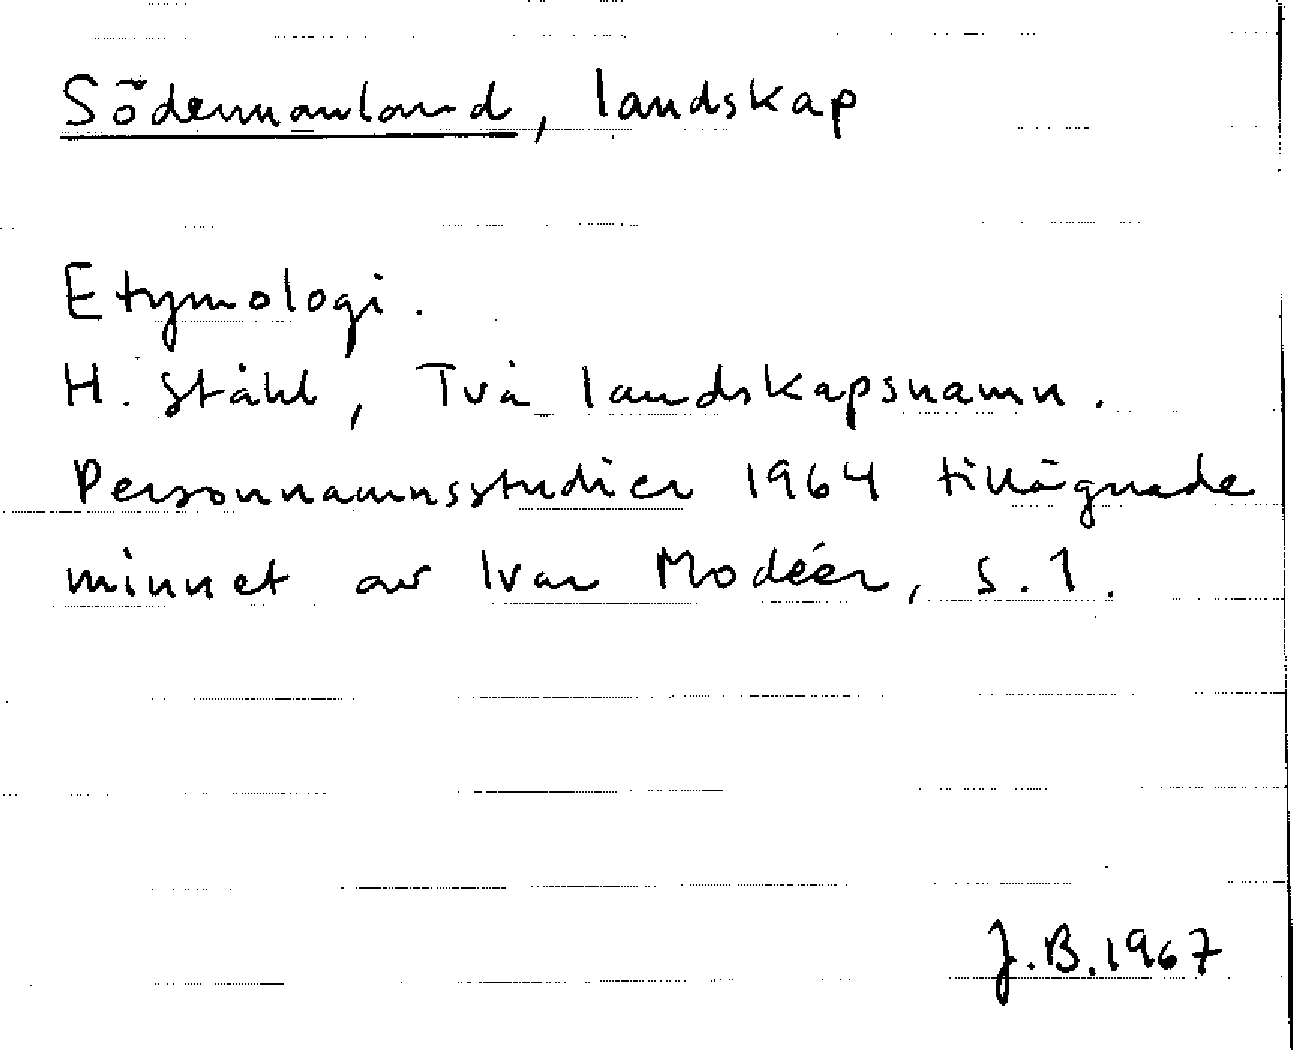 Södermanland, landskap
Etymologi.
H. Ståhl, Två landskapsnamn.
Personnamnsstudier 1964 tillägnade
minnet av Ivar Modéer, s. 1.
J.B. 1967